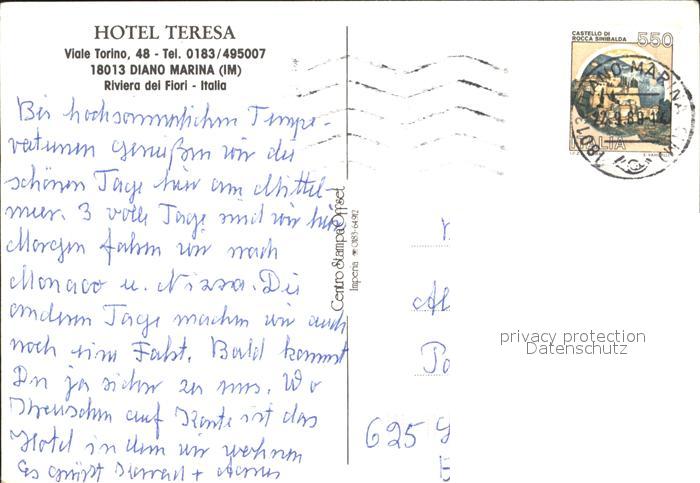 HOTEL TERESA
Viale Torino, 48 - Tel. 0183/495007
18013 DIANO MARINA (IM)
Riviera dei Fiori - Italia
Bei hochsommerlichen Tempe-
raturen genießen wir die
schönen Tage hier am Mittel-
meer. 3 volle Tage sind wir hier
Morgen fahren wir nach
Monaco u. Nizza. Die
anderen Tage machen wir auch
noch eine Fahrt. Bald kommst
Du ja sicher zu uns. Wo
auf Karte ist das
Hotel in dem wir wohnen
Es grüßt Konrad +
Centro Stampa Offset
Imperia ☎ 0183-64912
CASTELLO DI
ROCCA SINIBALDA
550
ITALIA
DIANO MARINA
1801
Al
Po
625
privacy protection
Datenschutz